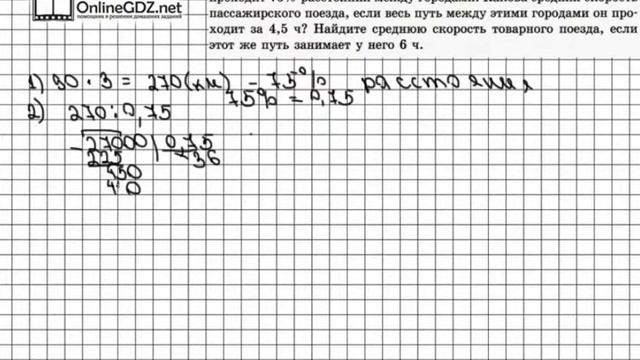 OnlineGDZ.net
Помощник в решении домашних заданий
проходит 75% расстояния между городами. Какова средняя скорость
пассажирского поезда, если весь путь между этими городами он про-
ходит за 4,5 ч? Найдите среднюю скорость товарного поезда, если
этот же путь занимает у него 6 ч.
1) 90 · 3 = 270(км) – 75% расстояния
75% = 0,75
2) 270 : 0,75
27000 | 0,75
225 36
450